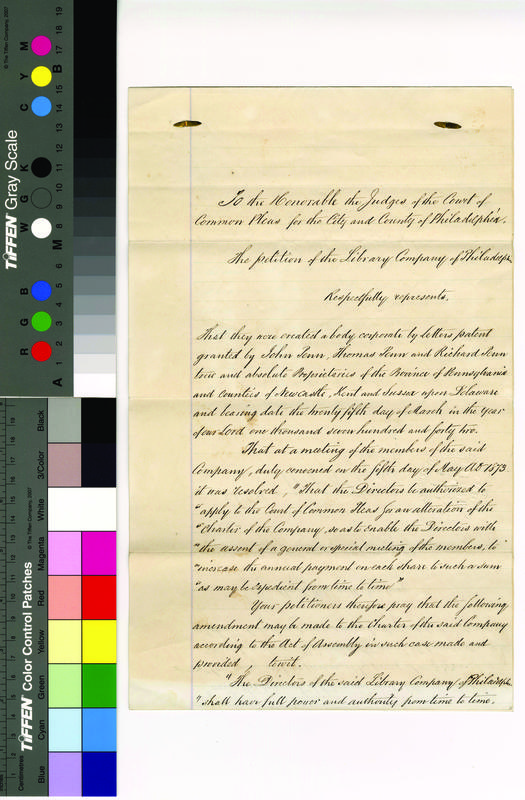 To the Honorable the Judges of the Court of
Common Pleas for the City and County of Philadelphia.
The petition of the Library Company of Philadelph
Respectfully represents,
That they were created a body corporate by letters patent
granted by John Penn, Thomas Penn and Richard Penn
true and absolute Proprietaries of the Province of Pennsylvania
and Counties of Newcastle, Kent and Sussex upon Delaware
and bearing date the twenty fifth day of March in the Year
of our Lord one thousand seven hundred and forty two.
That at a meeting of the members of the said
Company, duly convened on the fifth day of May A.D. 1873
it was resolved, "That the Directors be authorized to
"apply to the Court of Common Pleas for an alteration of the
"Charter of the Company, so as to enable the Directors with
"the assent of a general or special meeting of the members, to
"increase the annual payment on each share to such a sum
"as may be expedient from time to time"
Your petitioners therefore pray that the following
amendment may be made to the Charter of the said Company
according to the Act of Assembly in such case made and
provided towit.
"The Directors of the said Library Company of Philadelph
"shall have full power and authority from time to time,
TIFFEN Gray Scale
© The Tiffen Company, 2007
R G B W G K C Y M
A 1 2 3 4 5 6 M 8 9 10 11 12 13 14 15 B 17 18 19
TIFFEN Color Control Patches
© The Tiffen Company, 2007
Centimetres
Blue Cyan Green Yellow Red Magenta White 3/Color Black